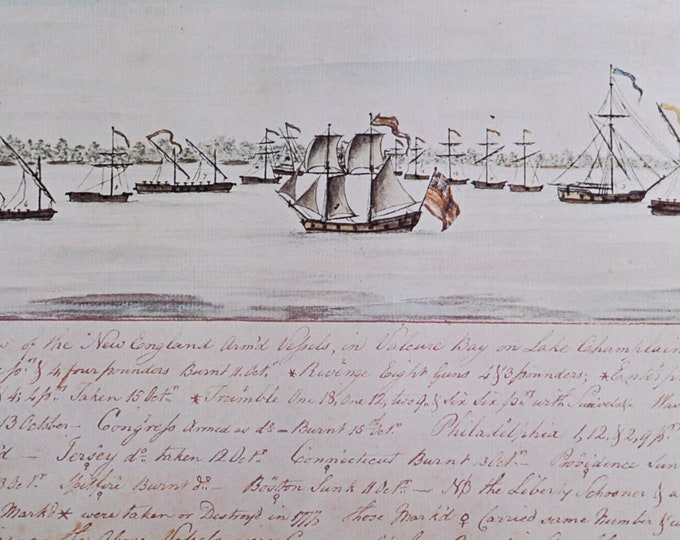 of the New England Arm'd Vessels, in Valcure Bay on Lake Champlain
& 4 four pounders Burnt 11 Octr * Revenge Eight Guns 4 & 3 pounders; * Enterp
Taken 15 Octr * Trumble One 18, One 12, two 9, & Six Six pr with Swivels
13 October - Congress Armed as do - Burnt 15 Octr Philadelphia 1, 12, & 2, 9 pr
Jersey do taken 12 Octr Connecticut Burnt 13 Octr - Providence Sun
Octr Spitfire Burnt do - Boston Sunk 11 Octr - NB the Liberty Schooner &
Mark'd * were taken or Destroy'd in 1777, those Mark'd Carried same Number &
the Above Vessels